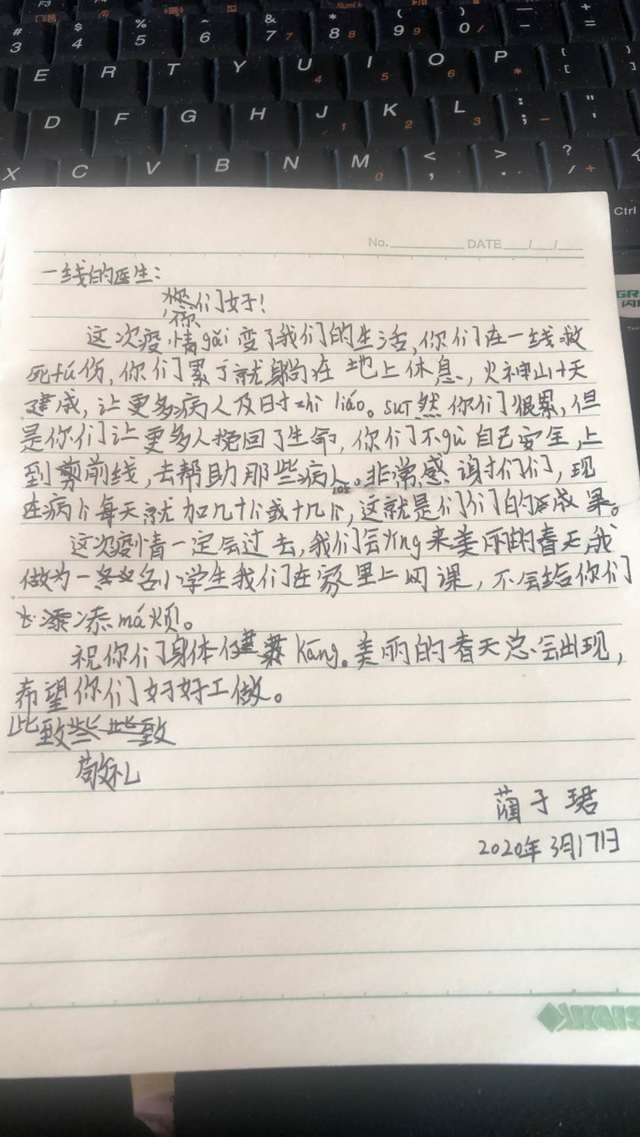 # $ % & * ( )
3 4 5 6 7 7 8 8 9 9 0 /
E R T Y U 4 I 5 O 6 P * { [ } ]
D F G H J 1 K 2 L 3 : ; - " '
X C V B N M 0 < , > . ? / + Ctrl
No. DATE / /
一线的医生:
您们好!
这次疫情gǎi变了我们的生活,你们在一线救
死fú伤,你们累了就躺在地上休息,火神山十天
建成,让更多病人及时zhì liáo。suī然你们很累,但
是你们让更多人挽回了生命,你们不gù自己安全,上
到前线,去帮助那些病人。非常感谢们们,现
在病人每天就加几十个或十几个,这就是们们的成果。
这次疫情一定会过去,我们会yíng来美丽的春天,我
做为一名小学生我们在家里上网课,不会给你们
添má烦。
祝你们身体健kāng。美丽的春天总会出现,
希望你们好好工做。
此致
敬礼
蔺子珺
2020年3月17日